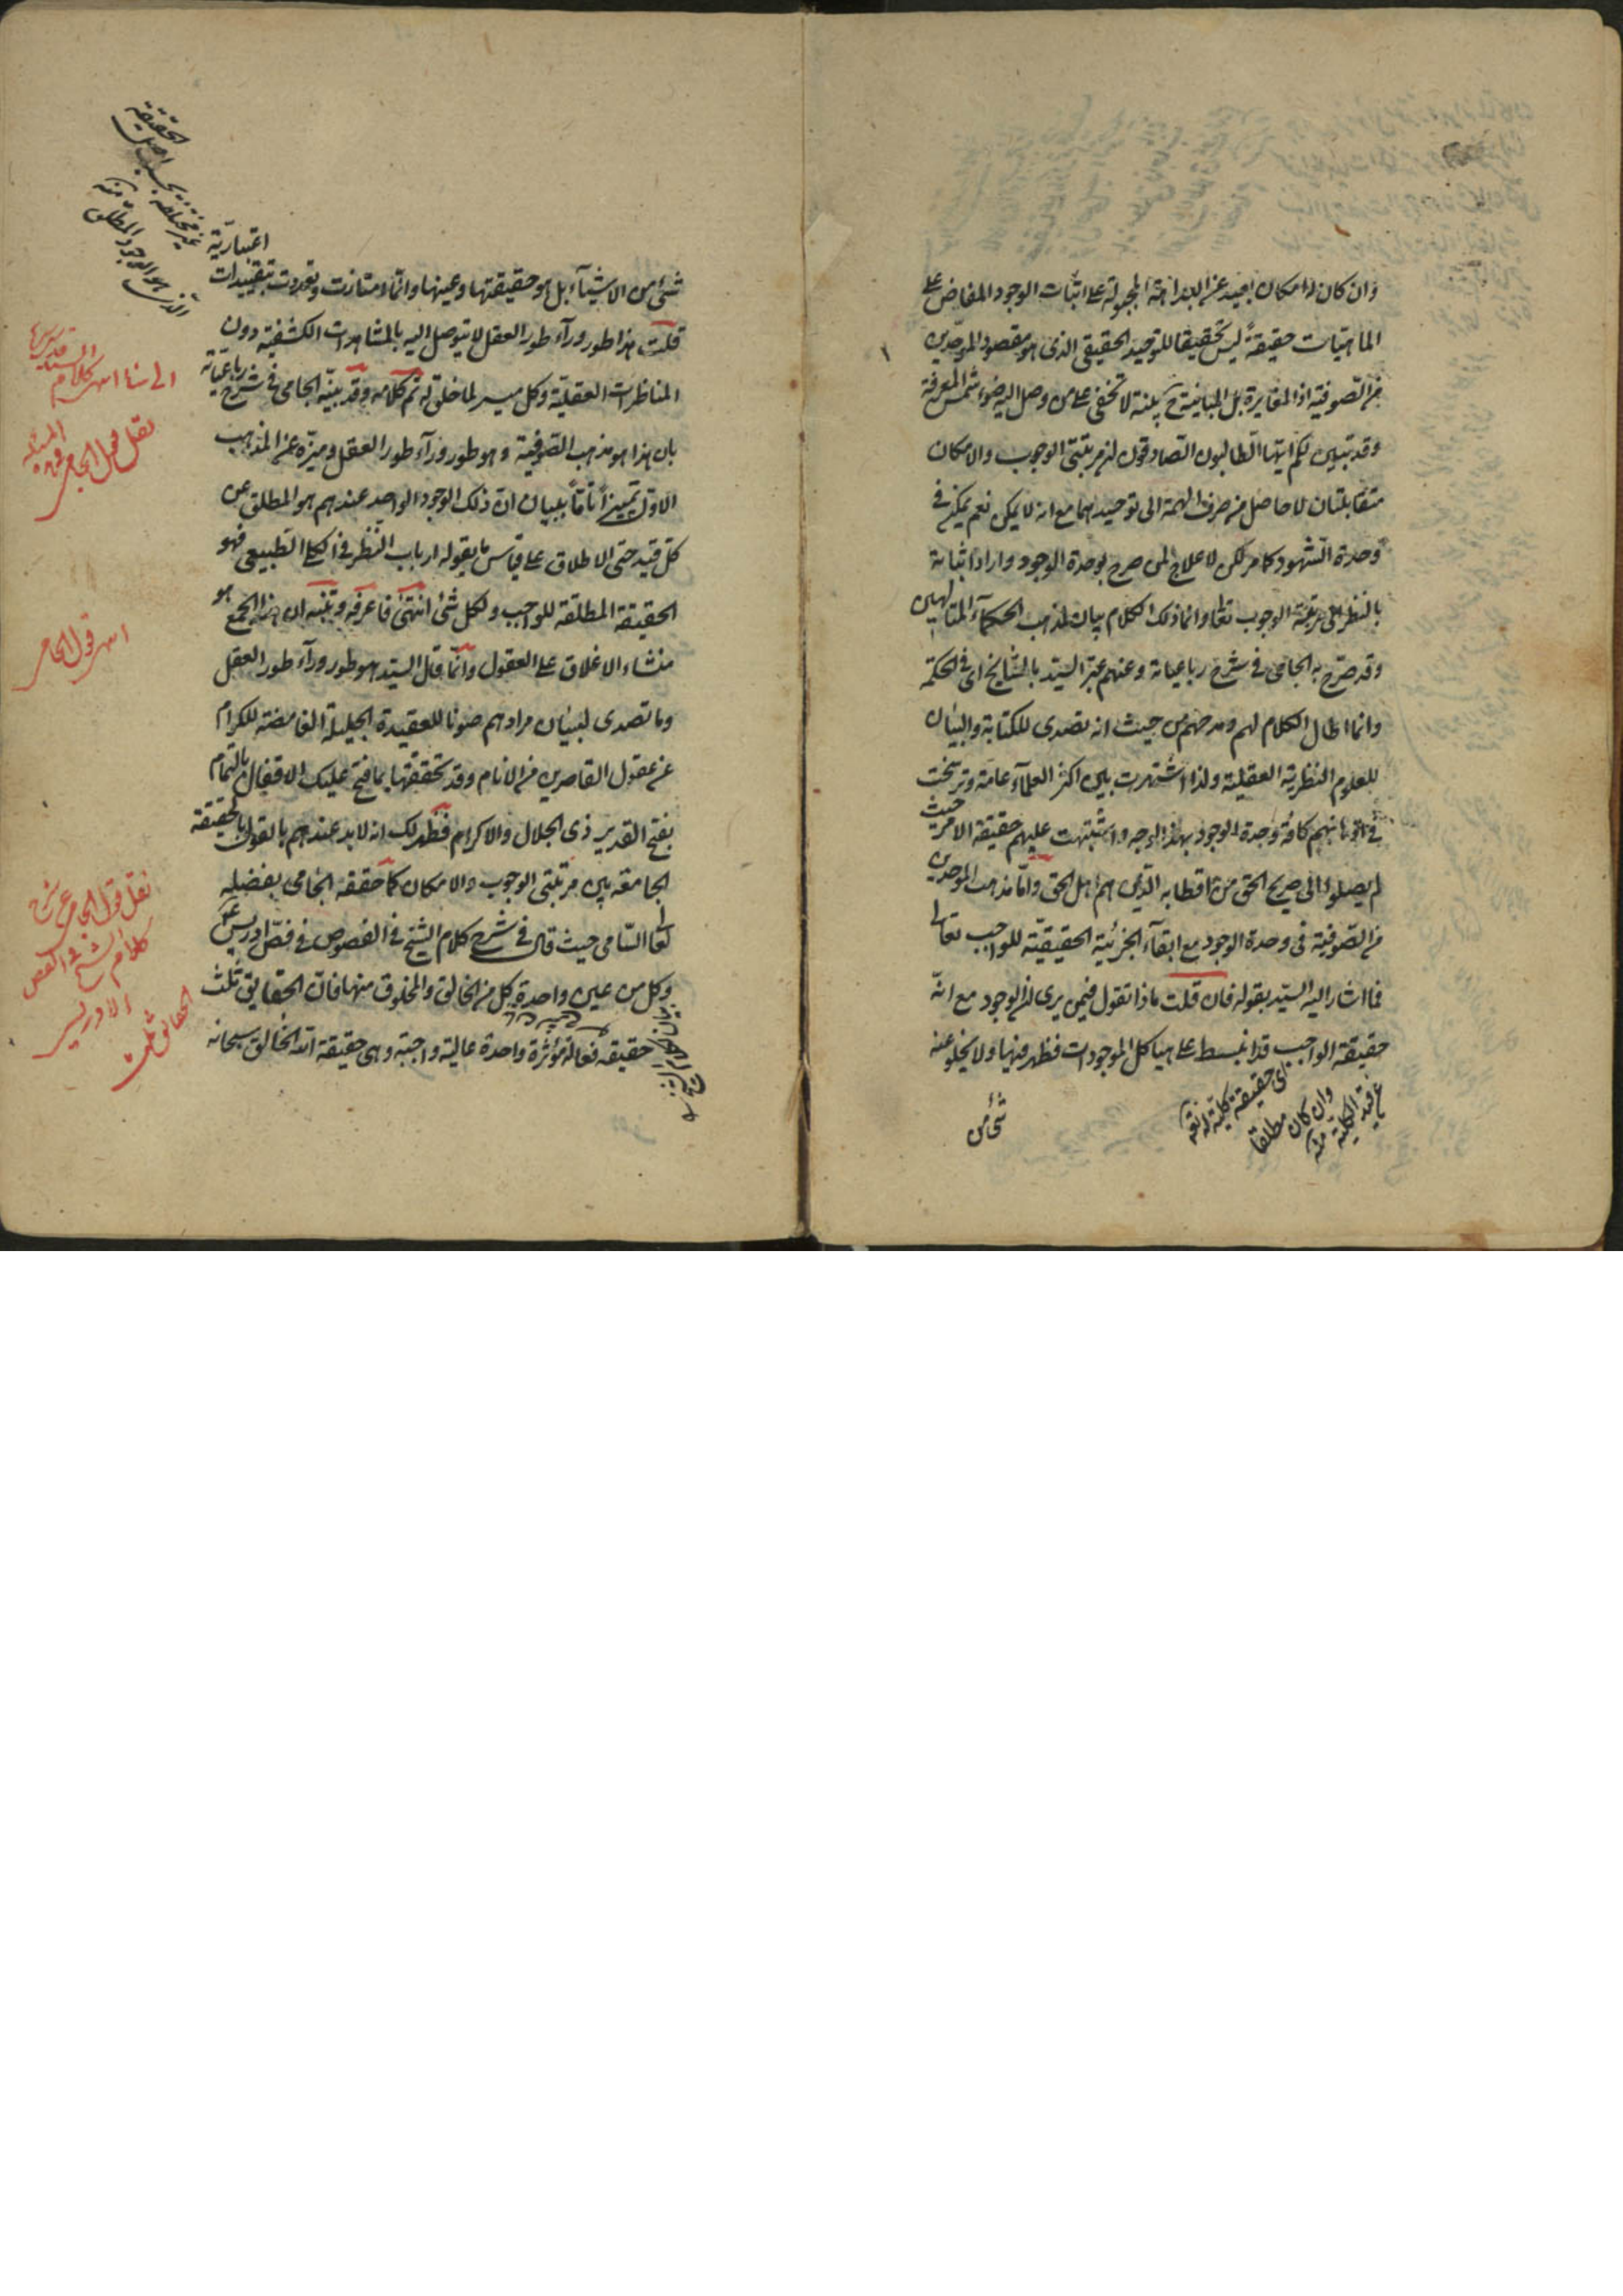 وان كان له امكان بعيد عن البداهة المجبولة على اثبات الوجود المفاض على
الماهيات حقيقة ليس تحقيقا للتوحيد الحقيقي الذي هو مقصود الموحدين
من الصوفية اذ المغايرة بل المباينة ح بينة لا تخفى على من وصل اليه ضوء شمس المعرفة
وقد تبين لكم ايها الطالبون الصادقون ان مرتبتي الوجوب والامكان
متقابلتان لا حاصل من صرف الهمة الى توحيدهما مع انه لا يمكن نعم يمكن في
وحدة الشهود كما مر لكن لا علاج لمن صرح بوحدة الوجود واراد اثباته
بالنظر الى مرتبة الوجوب تعالى وانما ذلك الكلام بيان لمذهب الحكماء المتألهين
وقد صرح به الجامي في شرح رباعياته وعنهم عبر السيد بالمشايخ اى في الحكمة
وانما اطال الكلام لهم ومدحهم من حيث انه تصدى للكتابة والبيان
للعلوم النظرية العقلية ولذا اشتهرت بين اكثر العلماء عامة وترسخت
في اذهانهم كافة وحدة الوجود بهذا الوجه واشتبهت عليهم حقيقة الامر حيث
لم يصلوا الى صريح الحق من اقطابه الذين هم اهل الحق واما مذهب الموحدين
من الصوفية في وحدة الوجود مع ابقاء الجزئية الحقيقية للواجب تعالى
فما اشار اليه السيد بقوله فان قلت ماذا تقول فيمن يرى ان الوجود مع انه
حقيقة الواجب قد انبسط على هياكل الموجودات فظهر فيها ولا يخلو عنه
اى حقيقة كلية له تعالى
وان كان مطلقا
عن قيد الكلية منه
شئ من
شئ من الاشياء بل هو حقيقتها وعينها وانما امتازت وتعددت بتقييدات
اعتبارية
قلت هذا طور وراء طور العقل لا يتوصل اليه بالمشاهدات الكشفية دون
المناظرات العقلية وكل ميسر لما خلق له تم كلامه وقد بينه الجامي في شرح رباعياته
بان هذا هو مذهب الصوفية وهو طور وراء طور العقل وميزه عن المذهب
الاول تمييزا تاما ببيان ان ذلك الوجود الواحد عندهم هو المطلق عن
كل قيد حتى الاطلاق على قياس ما يقوله ارباب النظر في الكلي الطبيعي فهو
الحقيقة المطلقة للواجب ولكل شئ انتهى فاعرفه وتنبه ان هذا الجمع هو
منشاء الاغلاق على العقول وانما قال السيد هو طور وراء طور العقل
وما تصدى لبيان مرادهم صونا للعقيدة الجليلة الغامضة للكرام
عن عقول القاصرين من الانام وقد تحققتها بما فتح عليك الاقفال بالتمام
بفتح القدير ذى الجلال والاكرام فظهر لك انه لا بد عندهم بالقول بالحقيقة
الجامعة بين مرتبتي الوجوب والامكان كما حققه الجامي بفضله
تعالى السامي حيث قال في شرح كلام الشيخ في الفصوص في فص ادريس ع
وكل من عين واحدة كل من الخالق والمخلوق منها فان الحقايق ثلث
حقيقة فعالة مؤثرة واحدة عالية واجبة وهي حقيقة الله الخالق سبحانه
غير مختلفة بحسب اصل الحقيقة
الذي هو الوجود المطلق منه
الى هنا انتهى كلام السيد قدس سره
نقل قول الجامي في هذه المسئلة
انتهى قول الجامي
نقل قول الجامي عن شرح
كلام الشيخ في الفص
الادريسي
الحقائق ثلث